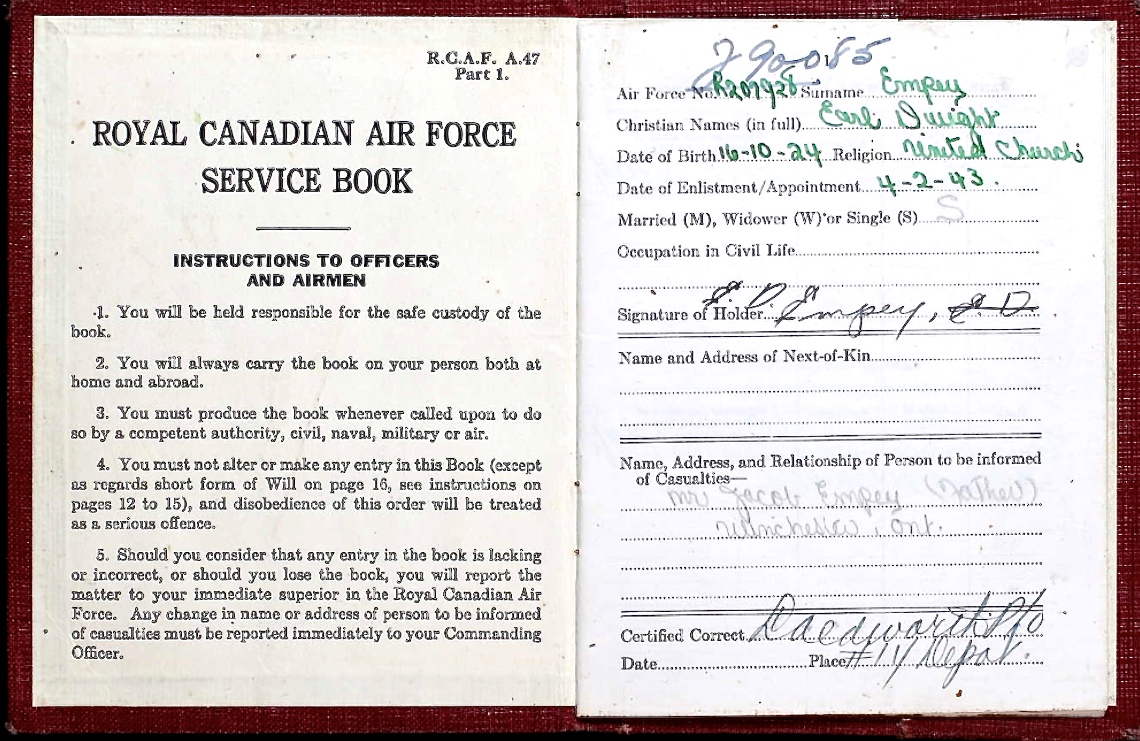 R.C.A.F. A.47
Part 1.
ROYAL CANADIAN AIR FORCE
SERVICE BOOK
INSTRUCTIONS TO OFFICERS
AND AIRMEN
1. You will be held responsible for the safe custody of the
book.
2. You will always carry the book on your person both at
home and abroad.
3. You must produce the book whenever called upon to do
so by a competent authority, civil, naval, military or air.
4. You must not alter or make any entry in this Book (except
as regards short form of Will on page 16, see instructions on
pages 12 to 15), and disobedience of this order will be treated
as a serious offence.
5. Should you consider that any entry in the book is lacking
or incorrect, or should you lose the book, you will report the
matter to your immediate superior in the Royal Canadian Air
Force. Any change in name or address of person to be informed
of casualties must be reported immediately to your Commanding
Officer.
J90085
Air Force No. R207928 Surname Empey
Christian Names (in full) Earl Dwight
Date of Birth 16-10-24 Religion United Church
Date of Enlistment/Appointment 4-2-43.
Married (M), Widower (W) or Single (S) S
Occupation in Civil Life
Signature of Holder E. D. Empey, E D
Name and Address of Next-of-Kin
Name, Address, and Relationship of Person to be informed
of Casualties—
Mr Jacob Empey (Father)
Winchester, Ont.
Certified Correct F/O
Date Place Depot.